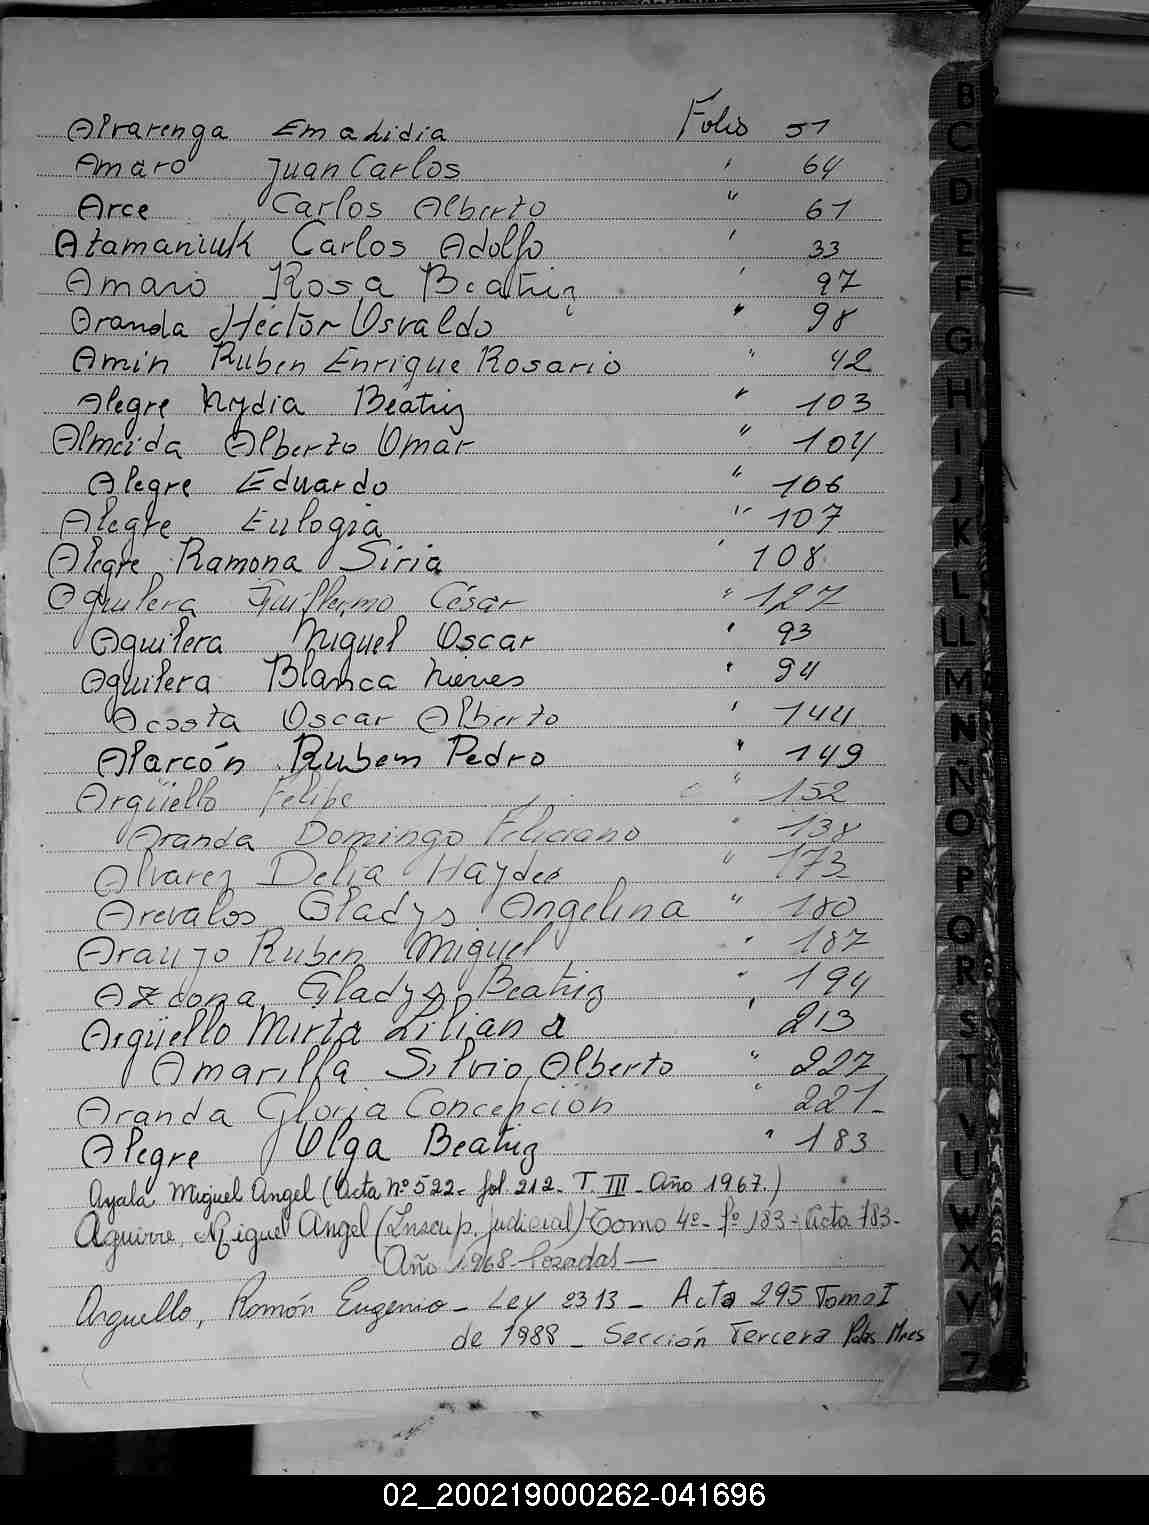 Alvarenga Ema Lidia Folio 51
Amaro Juan Carlos " 64
Arce Carlos Alberto " 61
Atamaniuk Carlos Adolfo " 33
Amaro Rosa Beatriz " 97
Aranda Héctor Osvaldo " 98
Amin Ruben Enrique Rosario " 42
Alegre Nydia Beatriz " 103
Almeida Alberto Omar " 104
Alegre Eduardo " 106
Alegre Eulogia " 107
Alegre Ramona Siria " 108
Aguilera Guillermo César " 127
Aguilera Miguel Oscar " 93
Aguilera Blanca Nieves " 94
Acosta Oscar Alberto " 144
Alarcón Ruben Pedro " 149
Argüello Felipe " 152
Aranda Domingo Feliciano " 138
Alvarez Delia Haydee " 173
Arevalos Gladys Angelina " 180
Araujo Ruben Miguel " 187
Azcona Gladys Beatriz " 194
Argüello Mirta Liliana " 213
Amarilla Silvio Alberto " 227
Aranda Gloria Concepción " 221
Alegre Olga Beatriz " 183
Ayala Miguel Angel (Acta Nº 522- fol 212- T. III - Año 1967.)
Aguirre, Miguel Angel (Inscrip. Judicial) Tomo 4º- fº 183- Acta 783-
Año 1968- Posadas—
Arguello, Ramón Eugenio - Ley 2313 - Acta 295 Tomo I
de 1988 - Sección Tercera Pdas Mnes
B
C
D
E
F
G
H
I
J
K
L
LL
M
N
Ñ
O
P
Q
R
S
T
V
U
W
X
Y
Z
02_200219000262-041696